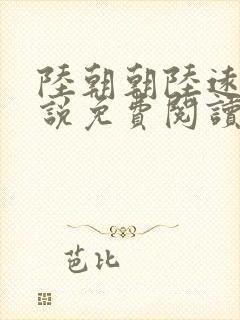 陸朝朝陸遠
說免費閱讀
芭比